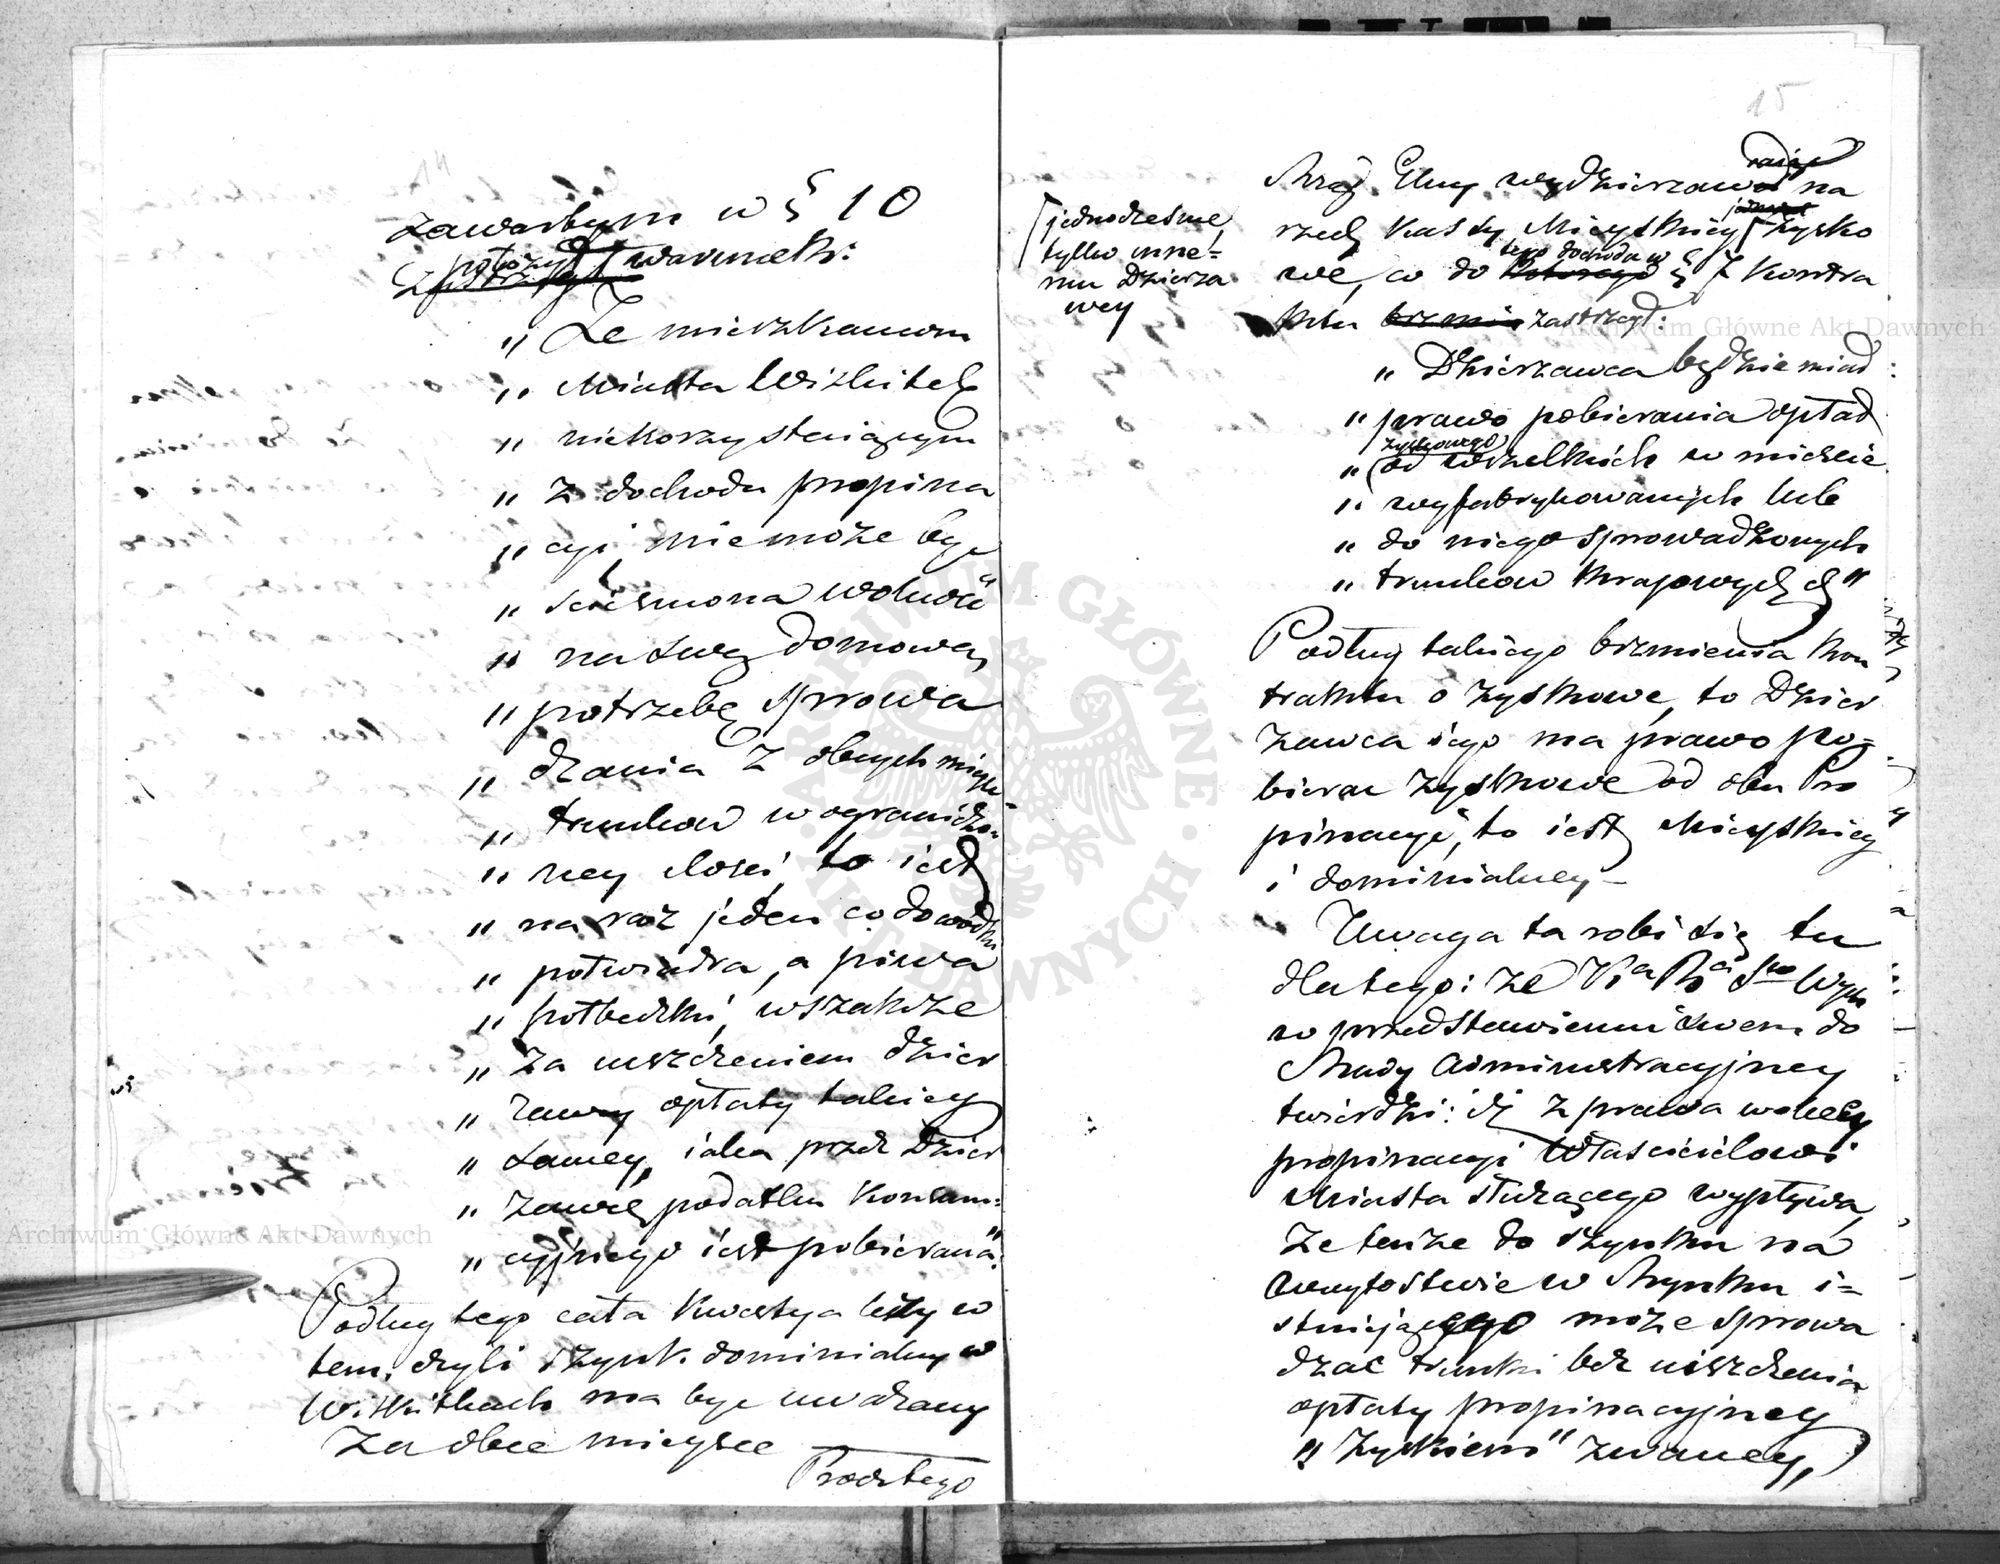 zawartym w § 10
położył warunek:
„ Że mieszkańcom
„ Miasta Wiskitek
„ niekorzystaiącym
„ z dochodu propina
„ cyi, niemoże być
„ ścieśniona wolność
„ na swą domową
„ potrzebę sprowa
„ dzania z obcych mieysc
„ trunków w ograniczo-
„ ney ilości, to iest
„ na raz jeden co do wódki
„ półwiadra, a piwa
„ półbeczki, wszakże
„ za uiszczeniem dzier
„ żawcy opłaty takiey
„ samey, iaka przez Dzier
„ żawcę podatku Konsum-
„ cyjnego iest pobierana."
Podług tego cała kwestya leży w
tem, czyli szynk dominialny w
Wiskitkach ma być uważany
za obce mieysce
Prócz tego
15
Rząd Głny wydzierżawiając na
rzecz Kassy Mieyskiey Zysko
we, co do tego dochodu w § 7 Kontra
ktu zastrzegł:
jednocześnie,
tylko inne-
mu Dzierża
wcy
„ Dzierżawca będzie miał
„ prawo pobierania opłat
zyskowego
„ od wszelkich w mieście
„ wyfabrykowanych lub
„ do niego sprowadzonych
„ trunków krajowych &"
Podług takiego brzmienia kon
traktu o zyskowe, to Dzier
żawca iego ma prawo po-
bierać zyskowe od obu Pro
pinacyi, to iest Mieyskiey
i dominialney –
Uwaga ta robi się tu
dlatego: że
w przedstawieniu swem do
Rady Administracyjney
twierdzi: iż z prawa wolney
propinacyi Właścicielowi
Miasta służącego wypływa,
że tenże do szynku na
wuytostwie w Rynku i-
stniejącego może sprowa
dzać trunki bez uiszczenia
opłaty propinacyjney
„Zyskiem" zwaney,
Archiwum Główne Akt Dawnych
Archiwum Główne Akt Dawnych
ARCHIWUM GŁÓWNE AKT DAWNYCH